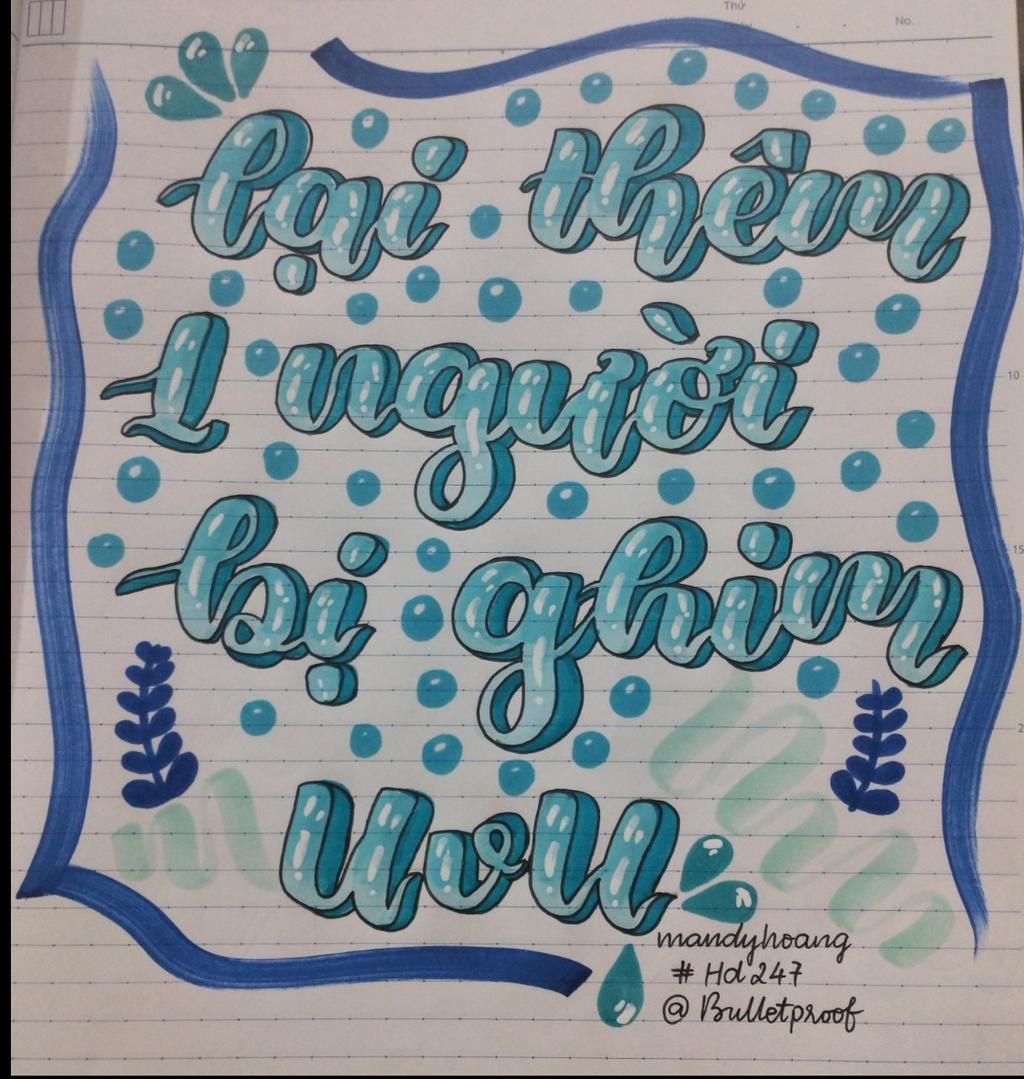 Thứ
No.
lại thêm
1 người
10
bị ghim
15
2
UvU
mandyhoang
# Hd 247
@ Bulletproof